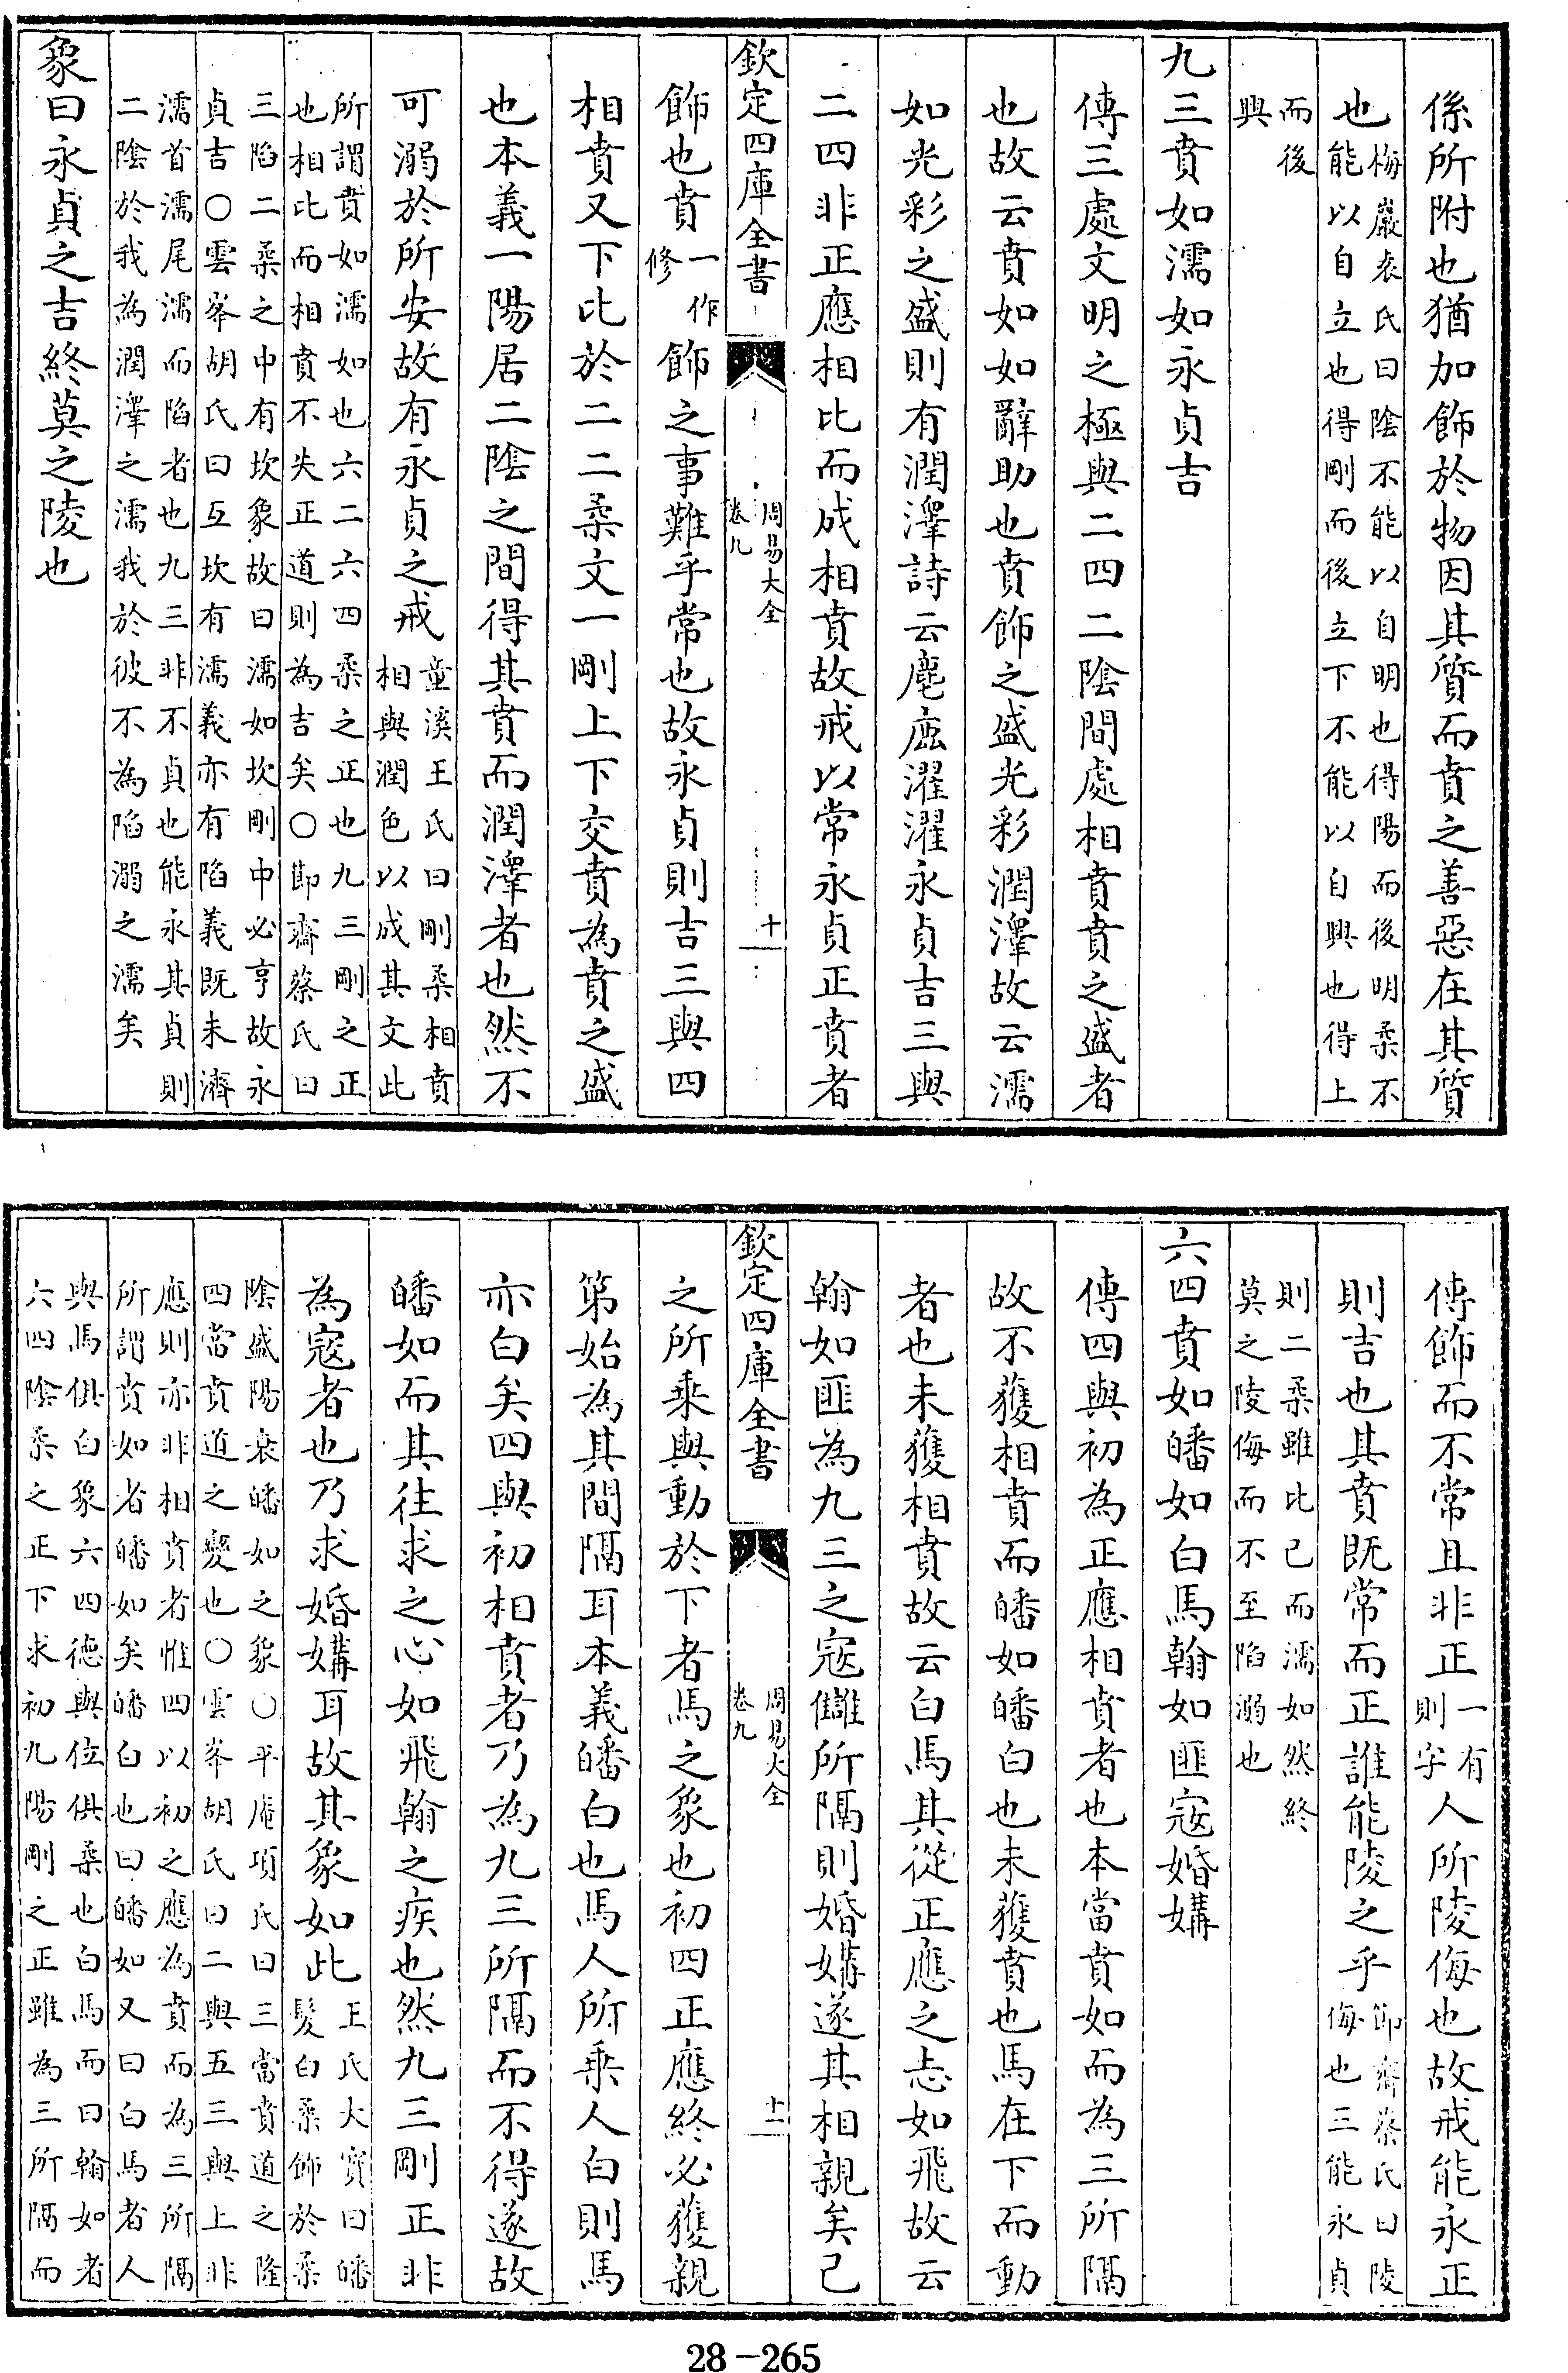 係所附也猶加飾於物因其質而賁之善惡在其質
也梅巖袁氏曰陰不能以自明也得陽而後明柔不
能以自立也得剛而後立下不能以自興也得上
而後
興
九三賁如濡如永貞吉
傳三處文明之極與二四二陰間處相賁賁之盛者
也故云賁如如辭助也賁飾之盛光彩潤澤故云濡
如光彩之盛則有潤澤詩云麀鹿濯濯永貞吉三與
二四非正應相比而成相賁故戒以常永貞正賁者
欽定四庫全書
周易大全
卷九
十
飾也賁一作
修飾之事難乎常也故永貞則吉三與四
相賁又下比於二二柔文一剛上下交賁為賁之盛
也本義一陽居二陰之間得其賁而潤澤者也然不
可溺於所安故有永貞之戒童溪王氏曰剛柔相賁
相與潤色以成其文此
所謂賁如濡如也六二六四柔之正也九三剛之正
也相比而相賁不失正道則為吉矣○節齋蔡氏曰
三陷二柔之中有坎象故曰濡如坎剛中必亨故永
貞吉○雲峯胡氏曰互坎有濡義亦有陷義既未濟
濡首濡尾濡而陷者也九三非不貞也能永其貞則
二陰於我為潤澤之濡我於彼不為陷溺之濡矣
象曰永貞之吉終莫之陵也
傳飾而不常且非正一有
則字人所陵侮也故戒能永正
則吉也其賁既常而正誰能陵之乎節齋蔡氏曰陵
侮也三能永貞
則二柔雖比己而濡如然終
莫之陵侮而不至陷溺也
六四賁如皤如白馬翰如匪寇婚媾
傳四與初為正應相賁者也本當賁如而為三所隔
故不獲相賁而皤如皤白也未獲賁也馬在下而動
者也未獲相賁故云白馬其從正應之志如飛故云
翰如匪為九三之寇讎所隔則婚媾遂其相親矣己
欽定四庫全書
周易大全
卷九
十一
之所乘與動於下者馬之象也初四正應終必獲親
第始為其間隔耳本義皤白也馬人所乘人白則馬
亦白矣四與初相賁者乃為九三所隔而不得遂故
皤如而其往求之心如飛翰之疾也然九三剛正非
為寇者也乃求婚媾耳故其象如此王氏大寶曰皤
髮白柔飾於柔
陰盛陽衰皤如之象○平庵項氏曰三當賁道之隆
四當賁道之變也○雲峯胡氏曰二與五三與上非
應則亦非相賁者惟四以初之應為賁而為三所隔
所謂賁如者皤如矣皤白也曰皤如又曰白馬者人
與馬俱白象六四德與位俱柔也白馬而曰翰如者
六四陰柔之正下求初九陽剛之正雖為三所隔而
28-265